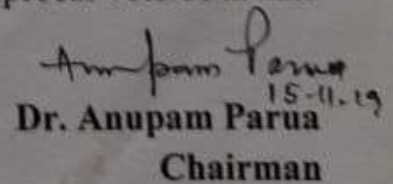 Anupam Parua
15-11-19
Dr. Anupam Parua
Chairman